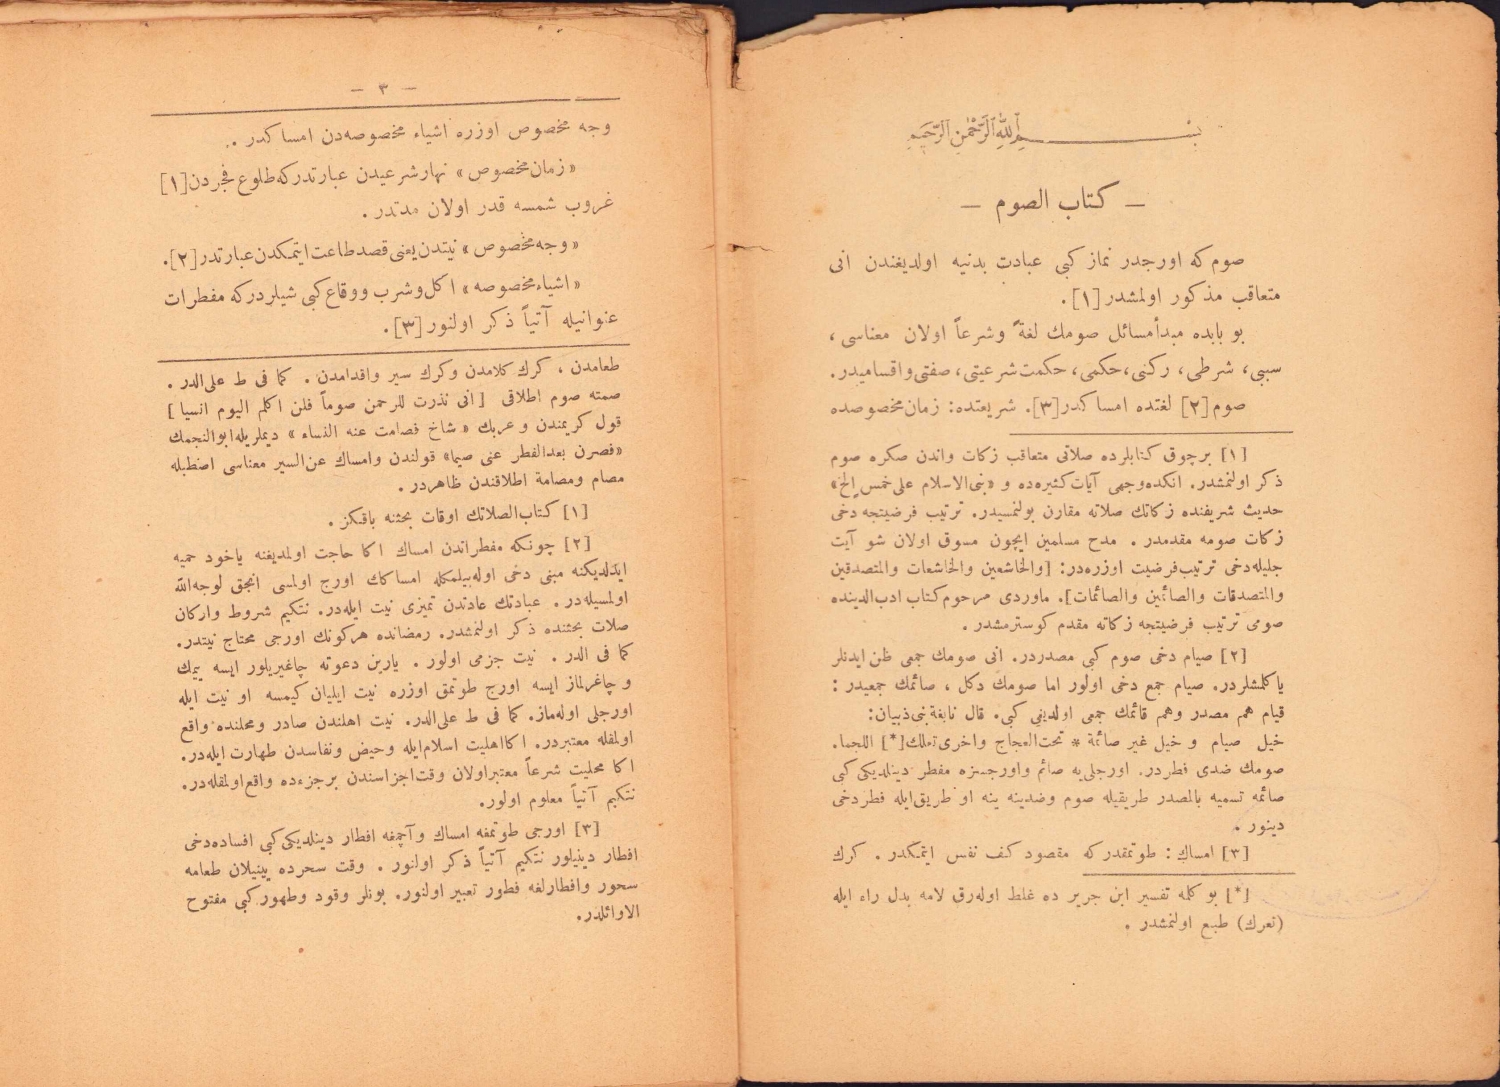 بسم الله الرحمن الرحيم
— كتاب الصوم —
صوم كه اورجدر نماز كبى عبادت بدنيه اولديغندن انى
متعاقب مذكور اولمشدر [١].
بو بابده مبدأ مسائل صومك لغةً وشرعاً اولان معناسى ،
سببى، شرطى، ركنى، حكمى، حكمت شرعيتى، صفتى واقساميدر.
صوم [٢] لغتده امساكدر [٣]. شريعتده: زمان مخصوصده
[١] برچوق كتابلرده صلاتى متعاقب زكات واندن صكره صوم
ذكر اولنمشدر. انكده وجهى آيات كثيره‌ده و «بنى الاسلام على خمس الخ»
حديث شريفنده زكاتك صلاته مقارن بولنمسيدر. ترتيب فرضيتجه دخى
زكات صومه مقدمدر . مدح مسلمين ايچون مسوق اولان شو آيت
جليله‌دخى ترتيب فرضيت اوزره‌در: [والخاشعين والخاشعات والمتصدقين
والمتصدقات والصائمين والصائمات]. ماوردى مرحوم كتاب ادب‌الدينده
صومى ترتيب فرضيتجه زكاته مقدم كوسترمشدر .
[٢] صيام دخى صوم كبى مصدردر. انى صومك جمعى ظن ايدنلر
ياكلمشلردر. صيام جمع دخى اولور اما صومك دكل ، صائمك جمعيدر :
قيام هم مصدر وهم قائمك جمعى اولديغى كبى. قال نابغة بنى ذبيان:
خيل صيام و خيل غير صائمة * تحت العجاج واخرى تعلك [*] اللجما.
صومك ضدى فطردر. اورجلى‌يه صائم واورجسزه مفطر دينلديكى كبى
صائمه تسميه بالمصدر طريقيله صوم وضدينه ينه او طريق ايله فطر دخى
دينور .
[٣] امساك : طوتمقدركه مقصود كف نفس ايتمكدر . كرك
[*] بو كلمه تفسير ابن جرير ده غلط اوله‌رق لامه بدل راء ايله
(تعرك) طبع اولنمشدر .
— ٣ —
وجه مخصوص اوزره اشياء مخصوصه‌دن امساكدر .
«زمان مخصوص» نهار شرعيدن عبارتدركه طلوع فجردن [١]
غروب شمسه قدر اولان مدتدر .
«وجه مخصوص» نيتدن يعنى قصد طاعت ايتمكدن عبارتدر [٢].
«اشياء مخصوصه» اكل وشرب ووقاع كبى شيلردركه مفطرات
عنوانيله آتياً ذكر اولنور [٣].
طعامدن ، كرك كلامدن وكرك سير واقدامدن . كما فى ط على الدر .
صمته صوم اطلاقى [انى نذرت للرحمن صوماً فلن اكلم اليوم انسيا]
قول كريمندن و عربك «شاخ فصامت عنه النساء» ديملريله ابوالنجمك
«فصرن بعد الفطر عنى صيما» قولندن وامساك عن السير معناسى اصطبله
مصام ومصامة اطلاقندن ظاهردر .
[١] كتاب الصلاتك اوقات بحثنه باقكز .
[٢] چونكه مفطراتدن امساك اكا حاجت اولمديغنه ياخود حميه
ايدلديكنه مبنى دخى اوله‌بيلمكله امساكك اورج اولمسى انجق لوجه‌الله
اولمسيله‌در . عبادتك عادتدن تميزى نيت ايله‌در. نتكيم شروط واركان
صلات بحثنده ذكر اولنمشدر. رمضانده هركونك اورجى محتاج نيتدر.
كما فى الدر . نيت جزمى اولور . يارين دعوته چاغيريلور ايسه ييمك
و چاغرلماز ايسه اورج طوتمق اوزره نيت ايليان كيمسه او نيت ايله
اورجلى اوله‌ماز. كما فى ط على الدر. نيت اهلندن صادر ومحلنده واقع
اولمغله معتبردر. اكا اهليت اسلام ايله وحيض ونفاسدن طهارت ايله‌در.
اكا محليت شرعاً معتبر اولان وقت اجزاسندن برجزءده واقع اولمغله‌در.
نتكيم آتياً معلوم اولور.
[٣] اورجى طوتمغه امساك وآچمغه افطار دينلديكى كبى افساده دخى
افطار دينيلور نتكيم آتياً ذكر اولنور . وقت سحرده يينيلان طعامه
سحور وافطارلغه فطور تعبير اولنور. بونلر وقود وطهور كبى مفتوح
الاوائلدر.